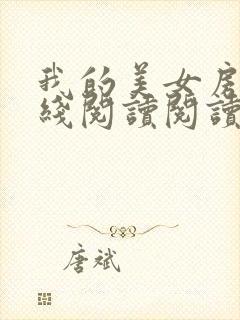 我的美女房
綫閱讀閱讀
唐斌